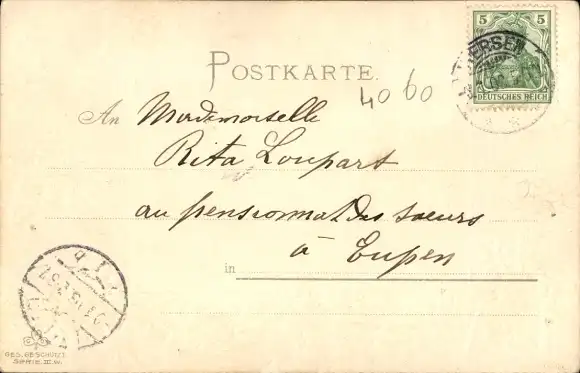 5 5
DEUTSCHES REICH
POSTKARTE.
40 60
An Mademoiselle
Rita Loupart
au pensionnat des soeurs
à Eupen
in
GES. GESCHÜTZT
SERIE III. W.